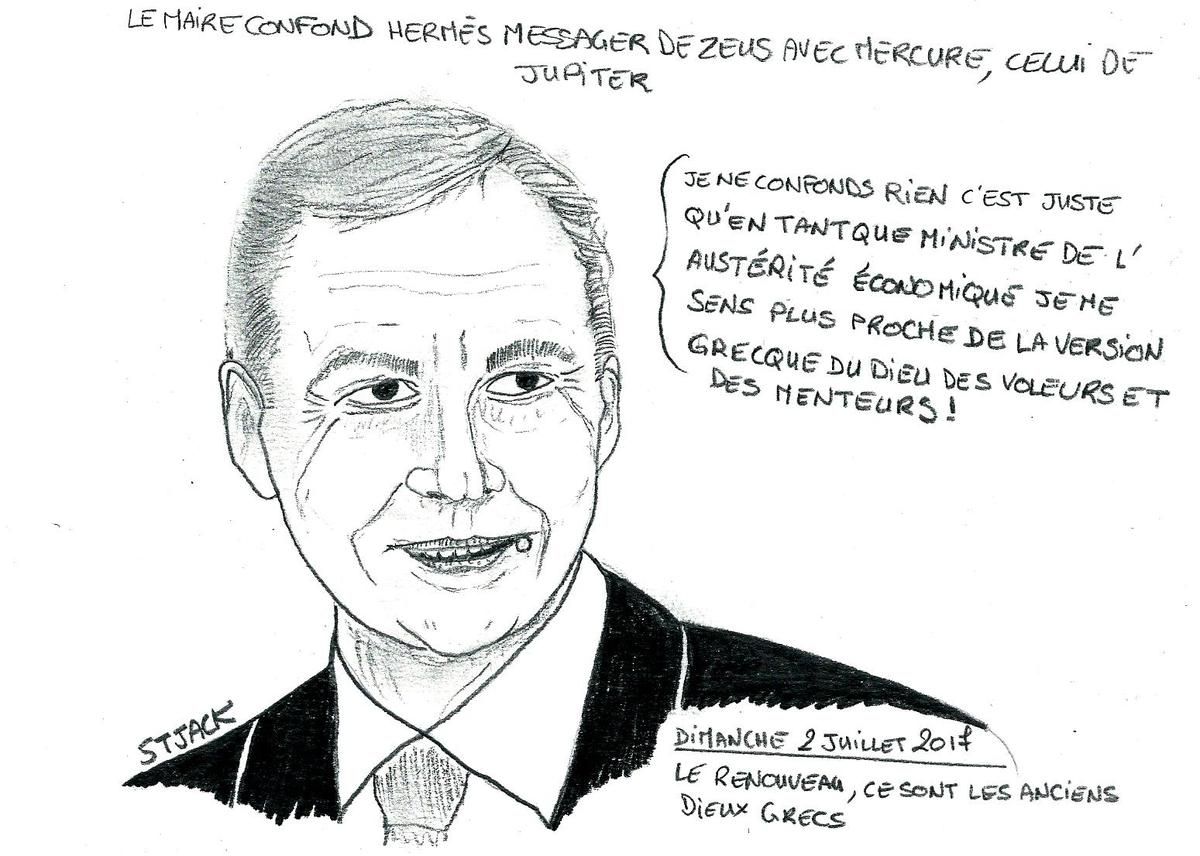 LE MAIRE CONFOND HERMÈS MESSAGER DE ZEUS AVEC MERCURE, CELUI DE
JUPITER
JE NE CONFONDS RIEN C'EST JUSTE
QU'EN TANT QUE MINISTRE DE L'
AUSTÉRITÉ ÉCONOMIQUE JE ME
SENS PLUS PROCHE DE LA VERSION
GRECQUE DU DIEU DES VOLEURS ET
DES MENTEURS !
STJACK
DIMANCHE 2 JUILLET 2017
LE RENOUVEAU, CE SONT LES ANCIENS
DIEUX GRECS